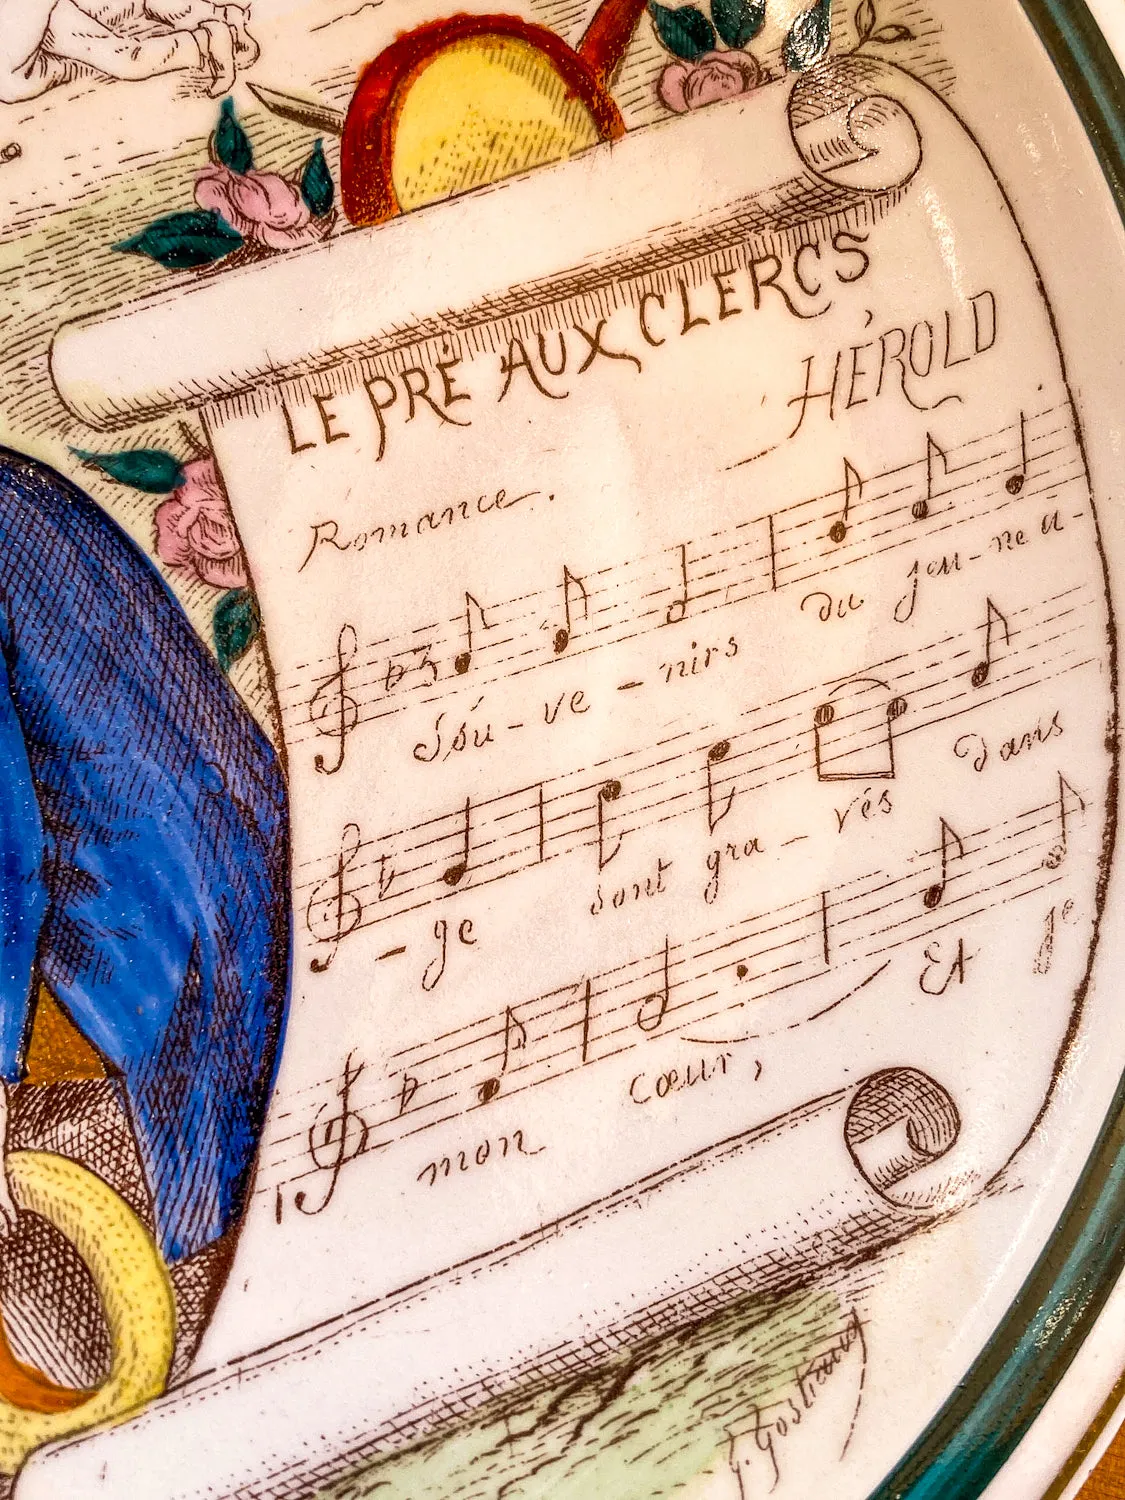 LE PRÉ AUX CLERCS
HÉROLD
Romance.
Sou-ve-nirs du jeu-ne â-
-ge sont gra-vés Dans
mon cœur, Et je